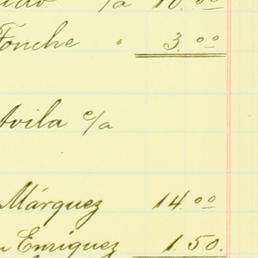 c/a 10.00
Fonche " 3.00
Avila c/a
Márquez 14.00
Enríquez 1.50.